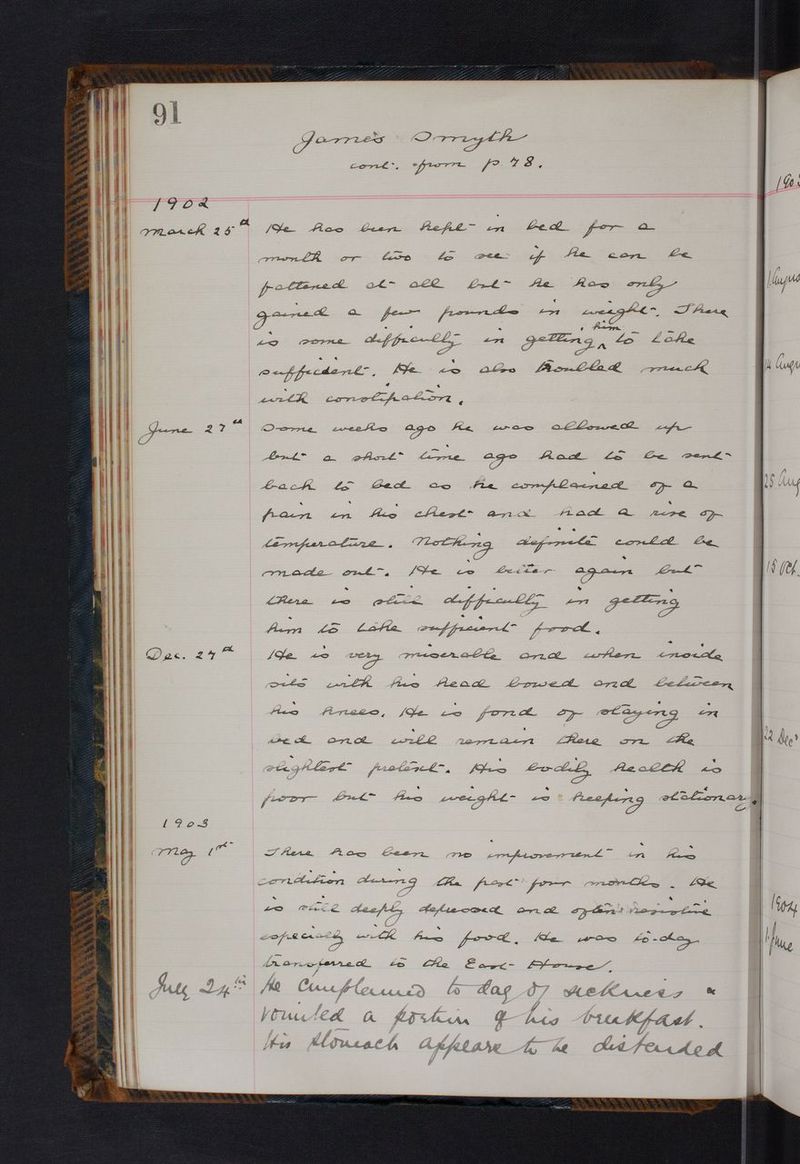 91
James Smyth
cont. from p 78.
1902
March 25th He has been kept in bed for a
month or two to see if he can be
fattened at all but he has only
gained a few pounds in weight. There
is some difficulty in getting him to take
sufficient. He is also troubled much
with constipation.
June 27th Some weeks ago he was allowed up
but a short time ago had to be sent
back to bed as he complained of a
pain in his chest and had a rise of
temperature. Nothing definite could be
made out. He is better again but
there is still difficulty in getting
him to take sufficient food.
Dec. 27th He is very miserable and when inside
sits with his head bowed and between
his knees. He is fond of staying in
bed and will remain there on the
slightest pretext. His bodily health is
poor but his weight is keeping stationary.
1903
May 1st There has been no improvement in his
condition during the past four months. He
is still deeply depressed and often resistive
especially with his food. He was to-day
transferred to the East House.
July 24th He complained to day of sickness &
vomited a portion of his breakfast.
His stomach appears to be distended
190
1 Augus
14 Augu
25 Aug
15 Oct.
22 Dec
1904
1 June